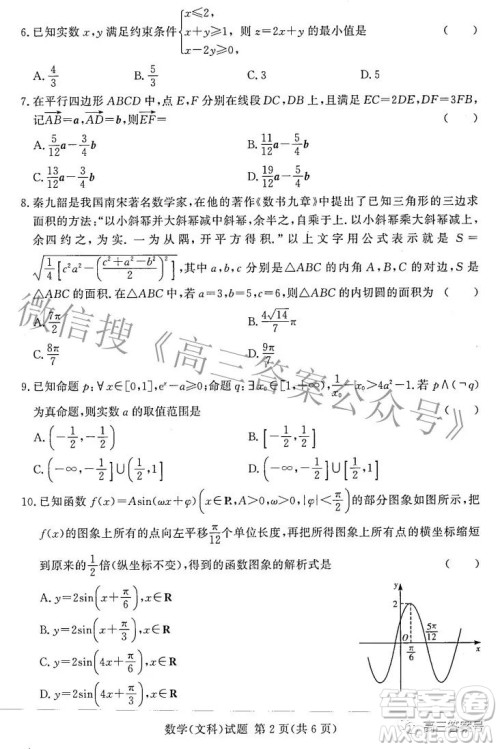 6.已知实数 x,y 满足约束条件{x≤2, x+y≥1, x-2y≥0, 则 z=2x+y 的最小值是 ( )
A. 4/3 B. 5/3 C. 3 D. 5
7.在平行四边形 ABCD 中,点 E,F 分别在线段 CD,BC 上,且满足 EC=2DE,DF=3FB,
记AB=a,AD=b,则EF= ( )
A. 5/12 a-3/4 b B. 11/12 a-3/4 b
C. 5/12 a-1/4 b D. 13/12 a-3/4 b
8.秦九韶是我国南宋著名数学家,在他的著作《数书九章》中提出了已知三角形的三边求
面积的方法:“以小斜幂并大斜幂减中斜幂,余半之,自乘于上.以小斜幂乘大斜幂减上,
余四约之,为实.一为从隅,开平方得积.”以上文字用公式表示就是 S=
√(1/4[c²a²-((c²+a²-b²)/2)²]) (其中 a,b,c 分别是△ABC 的内角 A,B,C 的对边,
△ABC 的面积. 在△ABC △ABC 的内切圆的面积为 ( )
A. 7π/2 B. 4√14/7 π
C. 8π/7 D. 9π/7
9.已知命题 p:∀x∈[0,1],eˣ-a≥0; 命题 q:∃x₀∈[1,+∞),1/x₀>4a²-1.若 p∧(¬q)
为真命题,则实数 a 的取值范围是 ( )
A. (-1/2,-1/2) B. [-1/2,-1/2]
C. (-∞,-1/2]∪[1/2,1] D. (-∞,-1/2)∪(1/2,1]
10.已知函数 f(x)=Asin(ωx+φ)(x∈R,A>0,ω>0,|φ|<π/2)的部分图象如图所示,把
f(x)的图象上所有的点向左平移π/12个单位长度,再把所得图象上所有点的横坐标缩短
到原来的1/2倍(纵坐标不变),得到的函数图象的解析式是 ( )
A. y=2sin(x+π/6),x∈R
B. y=2sin(x+π/3),x∈R
C. y=2sin(4x+π/6),x∈R
D. y=2sin(4x+π/3),x∈R
y
2
O
π/6
5π/12
x
数学(文科)试题 第 2 页(共 6 页)
微信搜《高三答案公众号》
高三答案号